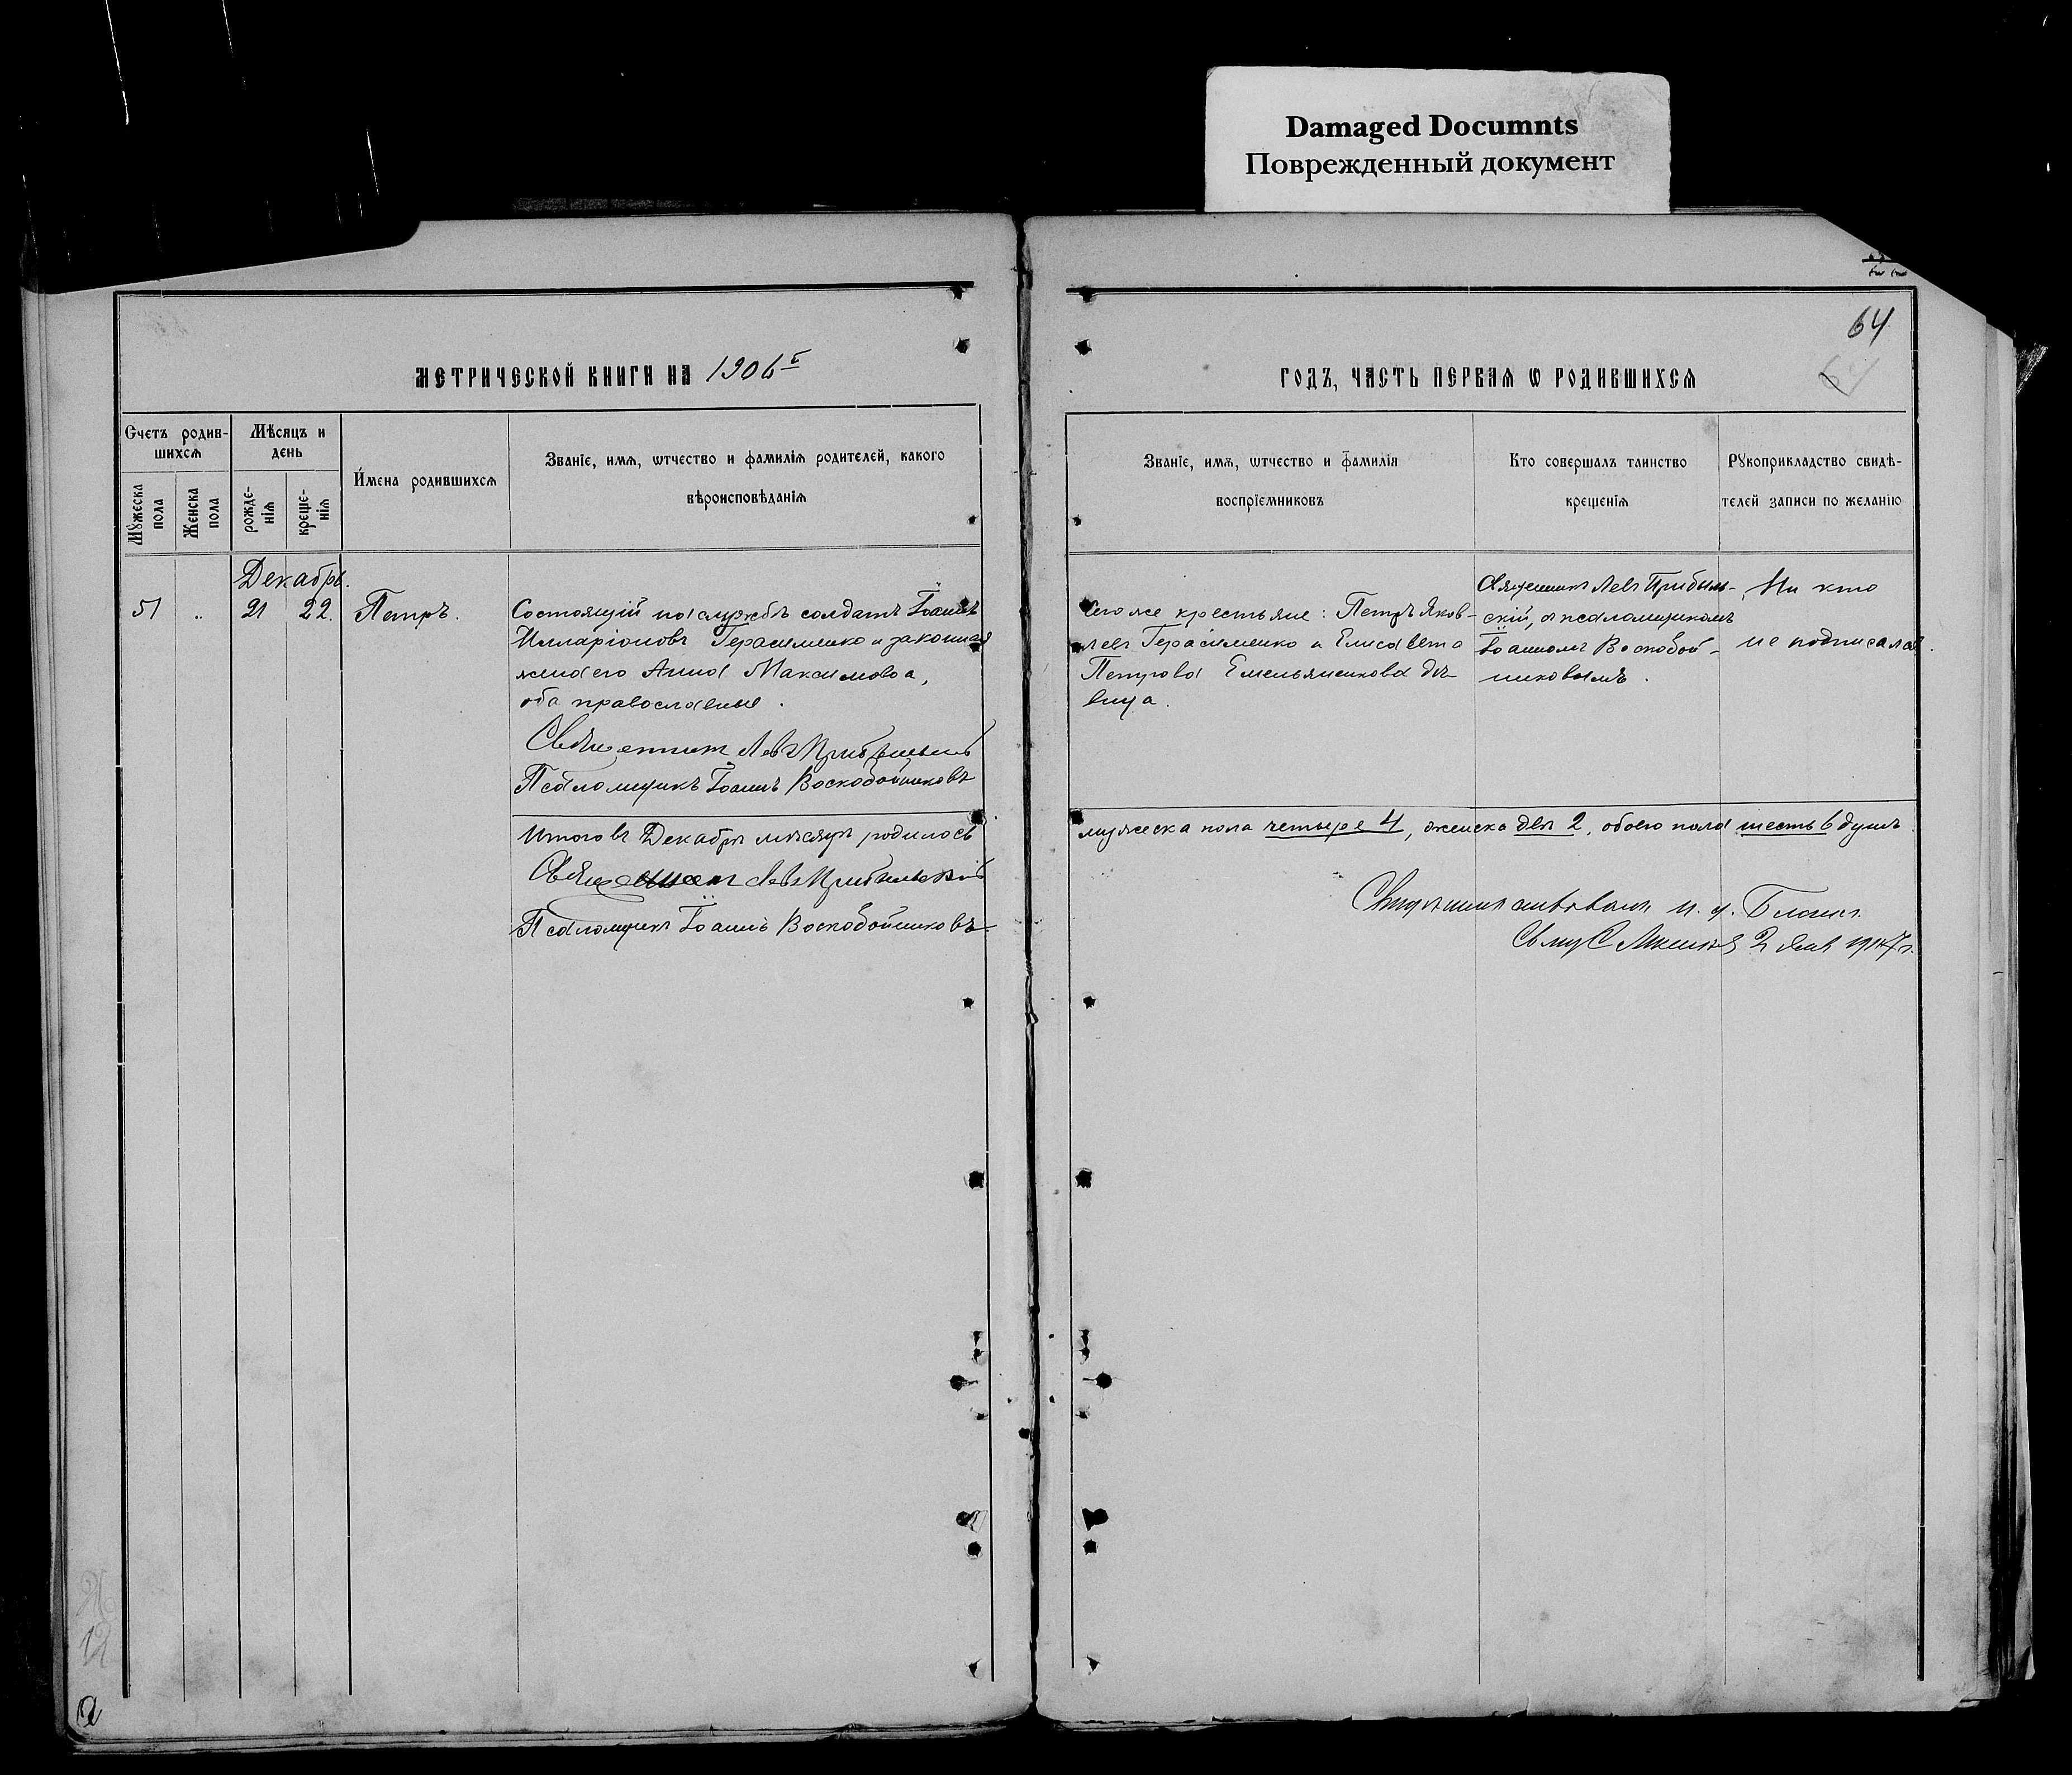 Damaged Documnts
Поврежденный документ
64
МЕТРИЧЕСКОЙ КНИГИ НА 1906 г
ГОДЪ, ЧАСТЬ ПЕРВАЯ Ѡ РОДИВШИХСЯ
Счетъ родив-
шихся
Мѣсяцъ и
день
Мужеска
пола
Женска
пола
рожде-
нія
креще-
нія
Имена родившихся
Званіе, имя, ѡтчество и фамилія родителей, какого
вѣроисповѣданія
Званіе, имя, ѡтчество и фамилія
воспріемниковъ
Кто совершалъ таинство
крещенія
Рукоприкладство свидѣ-
телей записи по желанію
Декабрь.
51 „ 21 22. Петръ.
Состоящій на службѣ солдатъ Іоаннъ
Илларіоновъ Герасименко и законная
жена его Анна Максимова,
оба православные.
Священникъ Левъ Прибыльскій
Псаломщикъ Іоаннъ Воскобойниковъ
Итого въ Декабрѣ мѣсяцѣ родилось
Священникъ Левъ Прибыльскій
Псаломщикъ Іоаннъ Воскобойниковъ
крестьяне: Петръ Яков-
левъ Герасименко и Елисавета
Петрова Емельяненкова дѣ-
вица.
Священникъ Левъ Прибыль-
скій, съ псаломщикомъ
Іоанномъ Воскобой-
никовымъ.
Ни кто
не подписался.
мужеска пола четыре 4, женска двѣ 2, обоего пола шесть 6 душъ
2 Янв 1907 г.